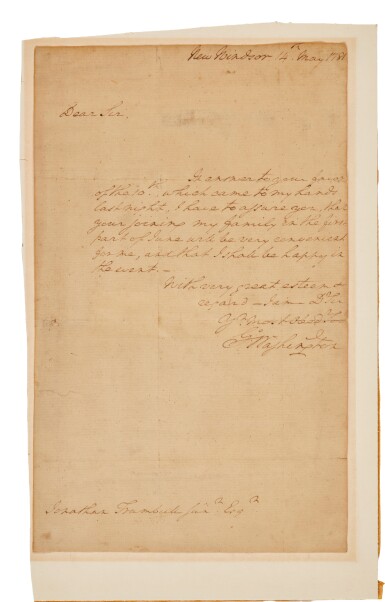 New Windsor 14th May 1781
Dear Sir,
In answer to your favor
of the 10th which came to my hands
last night, I have to assure you, that
your joining my family in the first
part of June will be very convenient
for me, and that I shall be happy in
the event. —
With very great esteem &
regard — I am — Dr Sir
Yr most Obedt
Go Washington
Jonathan Trumbull Junr Esqr